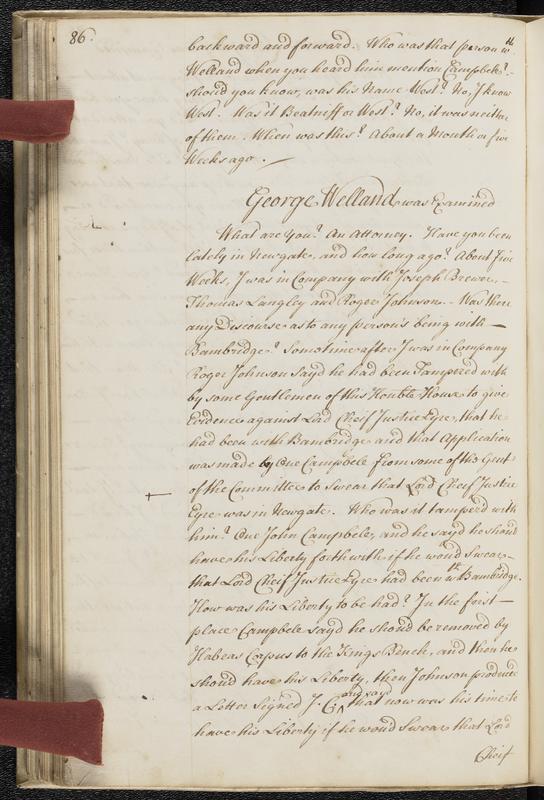 86.
backward and forward. Who was that person wth
Welland when you heard him mention Campbele?
should you know, was his Name West? No, I know
West. Was it Beatniff or West? No, it was neither
of them. When was this? About a Month or five
Weeks ago. —
George Welland was Examined
What are You? An Attorney. Have you been
lately in Newgate, and how long ago? About five
Weeks, I was in Company with Joseph Brewer,
Thomas Langley and Roger Johnson. Was there
any Discourse as to any person's being with —
Bambridge? Sometime after I was in Company
Roger Johnson sayd he had been Tampered with
by some Gentlemen of this Honble House to give
Evidence against Lord Cheif Justice Eyre, that he
had been with Bambridge and that Application
was made by One Campbele from some of the Gent
of the Committee to Swear that Lord Cheif Justice
Eyre was in Newgate. Who was it tamper'd with
him? One John Campbele, and he sayd he should
have his Liberty forthwith if he woud Swear
that Lord Cheif Justice Eyre had been wth Bambridge.
How was his Liberty to be had? In the first —
place Campbele sayd he should be removed by
Habeas Corpus to the Kings Bench, and then he
should have his Liberty, then Johnson produced
a Letter Signed J. C. and sayd that now was his time to
have his Liberty if he woud Swear that Lord
Cheif